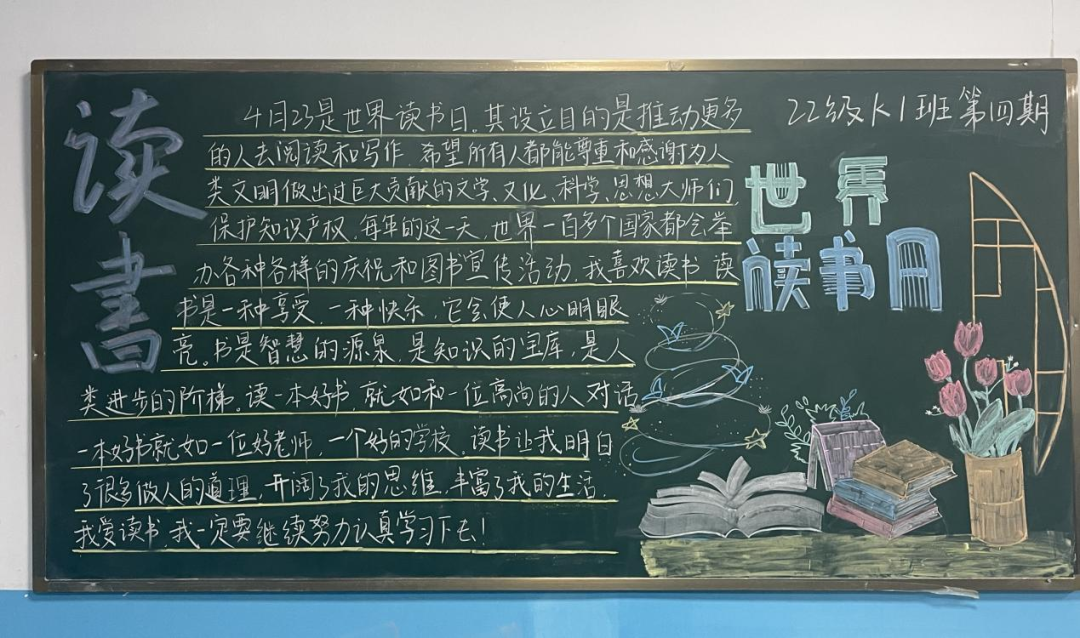 读書
4月23是世界读书日。其设立目的是推动更多
的人去阅读和写作，希望所有人都能尊重和感谢为人
类文明做出过巨大贡献的文学、文化、科学、思想大师们，
保护知识产权。每年的这一天，世界一百多个国家都会举
办各种各样的庆祝和图书宣传活动。我喜欢读书，读
书是一种享受，一种快乐，它会使人心明眼
亮。书是智慧的源泉，是知识的宝库，是人
类进步的阶梯。读一本好书，就如和一位高尚的人对话
一本好书就如一位好老师，一个好的学校。读书让我明白
了很多做人的道理，开阔了我的思维，丰富了我的生活。
我爱读书，我一定要继续努力认真学习下去！
22级K1班第四期
世界
读书日